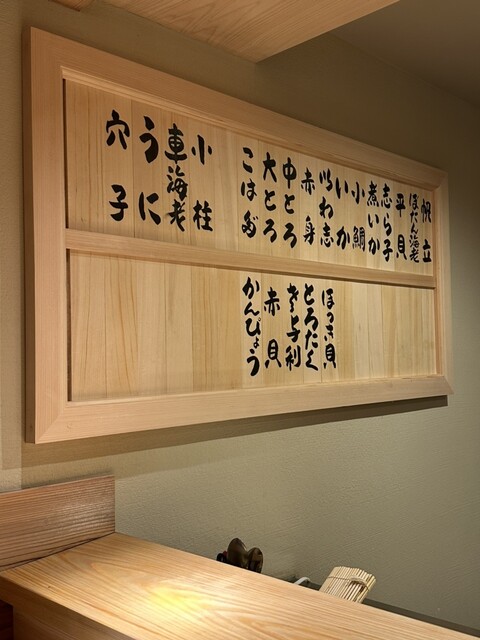 帆立
ぼたん海老
平貝
志ら子
煮いか
小鯛
いか
以わ志
赤身
中とろ
大とろ
こはだ
小柱
車海老
うに
穴子
ほっき貝
とろたく
さよ利
赤貝
かんぴょう